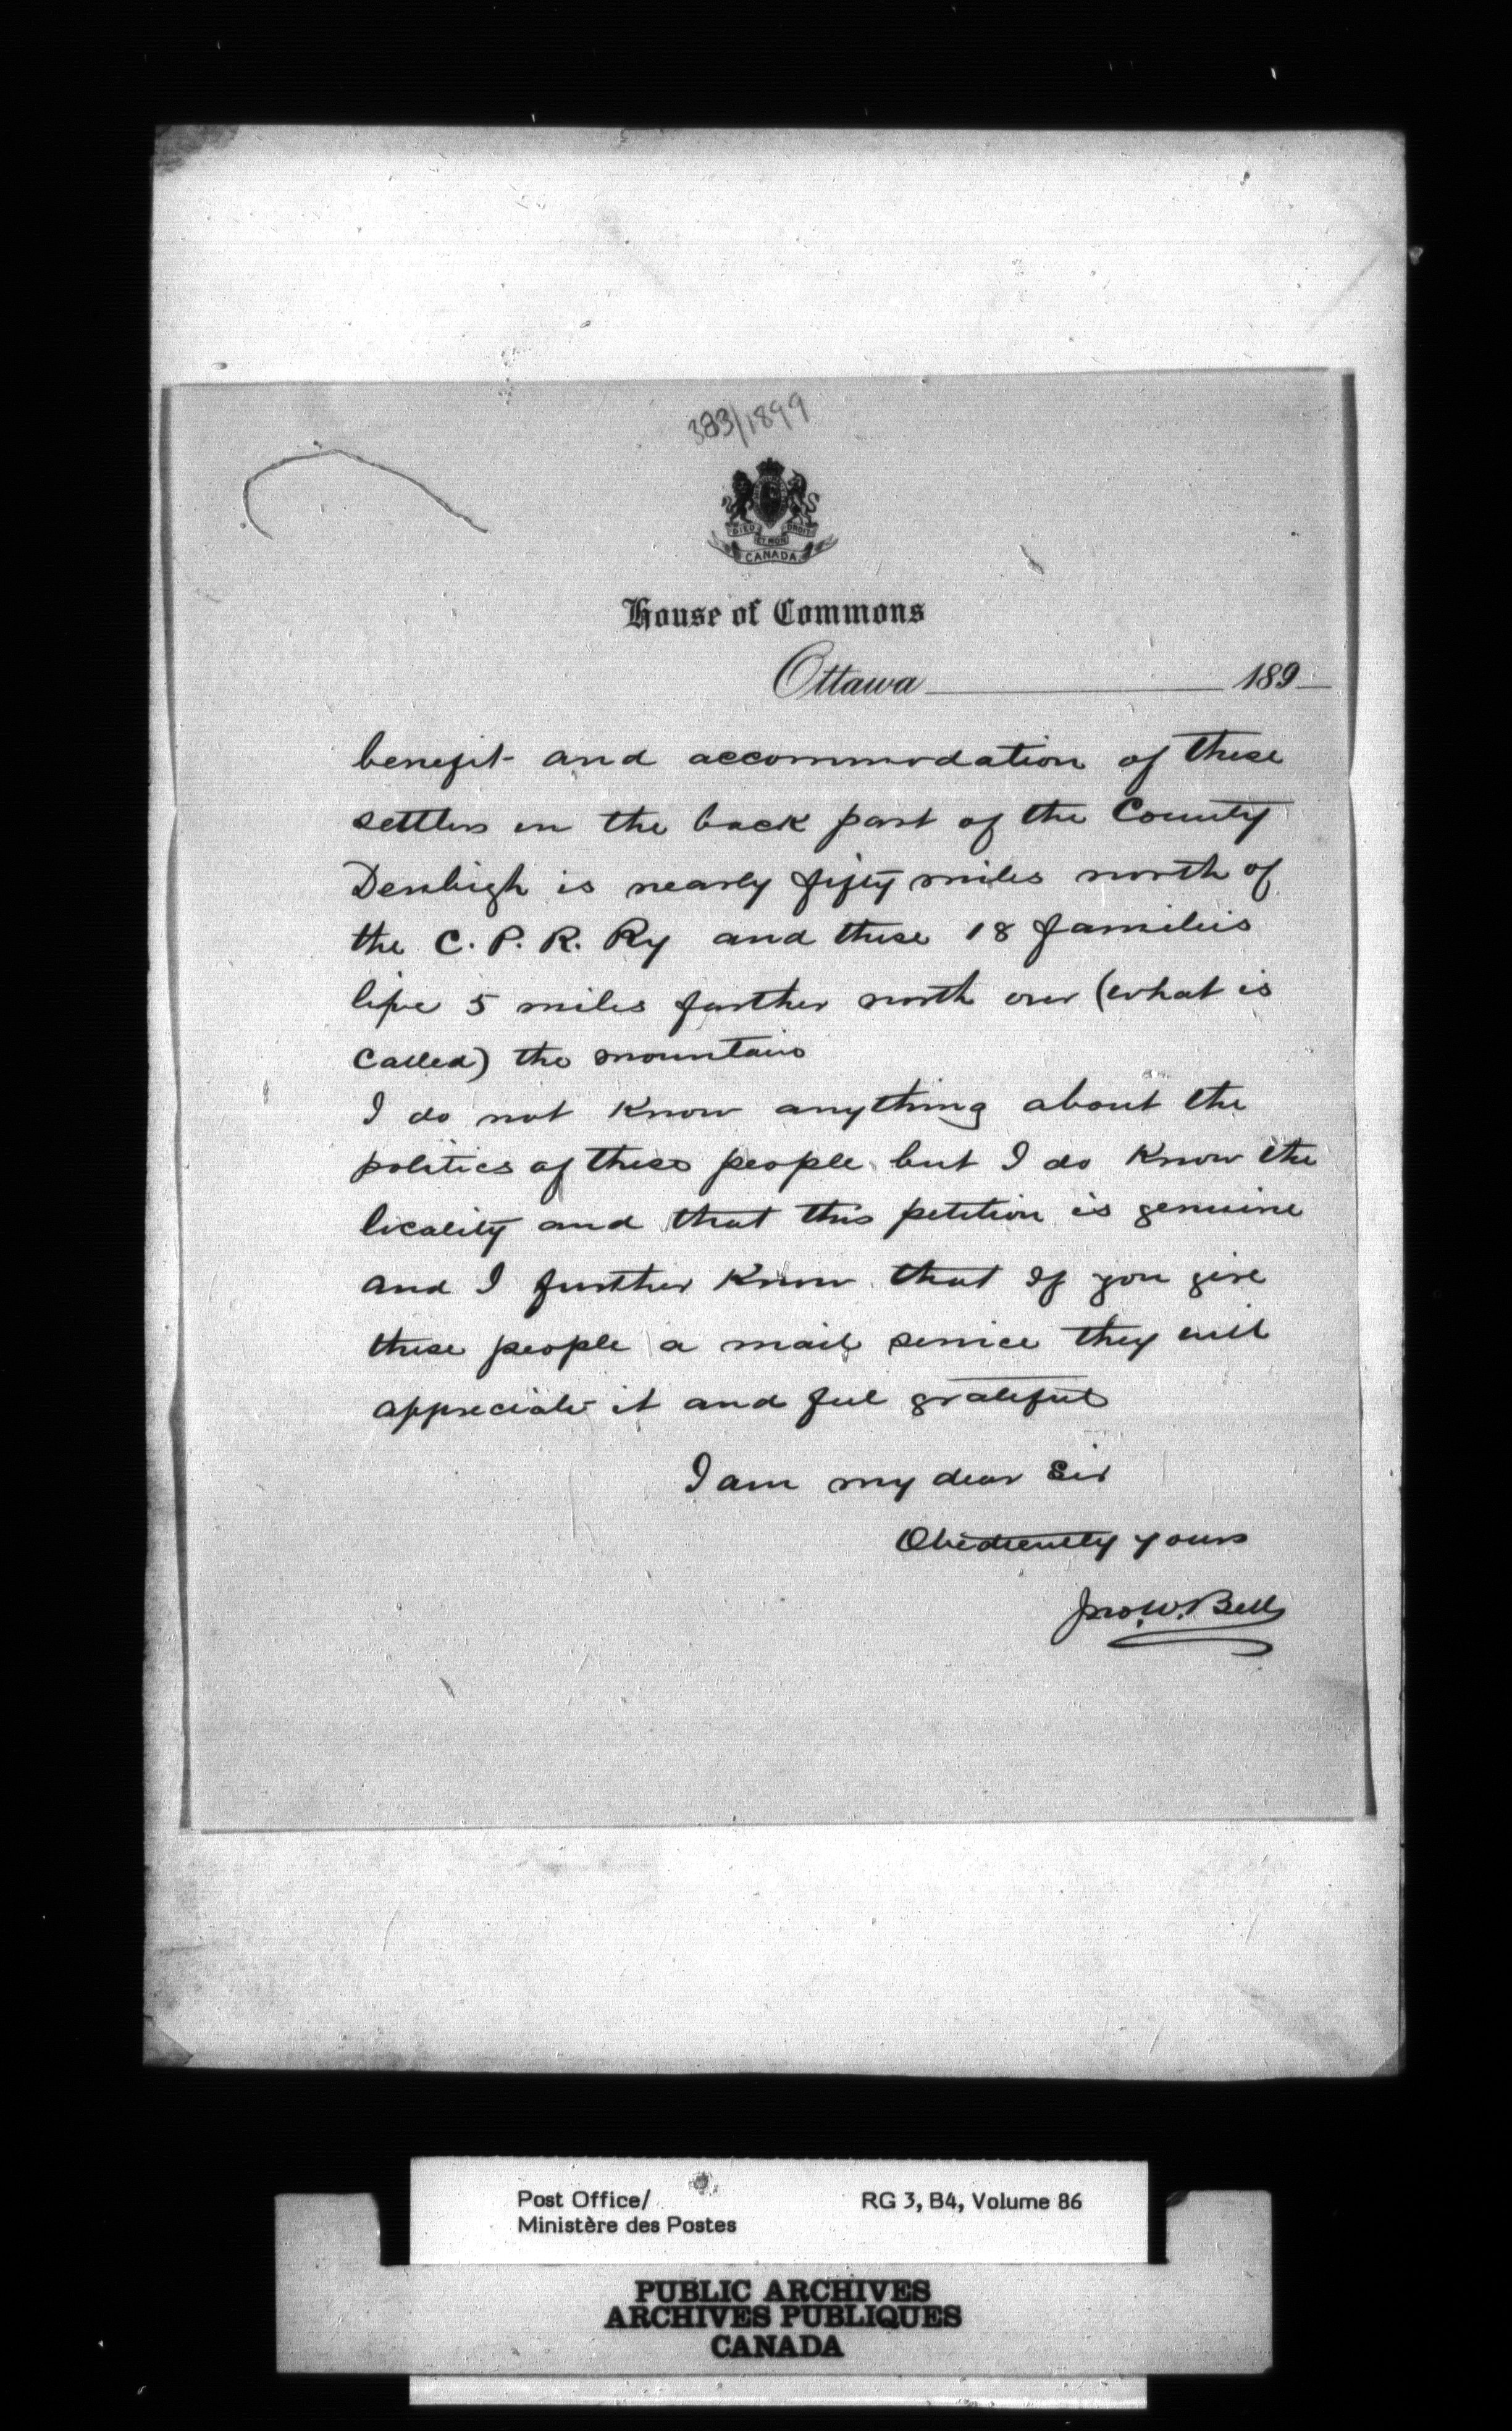 383/1899
DIEU ET MON DROIT
CANADA
House of Commons
Ottawa 189
benefit and accommodation of these
settlers in the back part of the County
Denbigh is nearly fifty miles north of
the C. P. R. Ry and these 18 families
live 5 miles farther north over (what is
called) the mountains
I do not know anything about the
politics of these people but I do know the
locality and that this petition is genuine
and I further know that if you give
these people a mail service they will
appreciate it and feel grateful
I am my dear Sir
Obediently yours
Jno. W. Bell
Post Office/ RG 3, B4, Volume 86
Ministère des Postes
PUBLIC ARCHIVES
ARCHIVES PUBLIQUES
CANADA